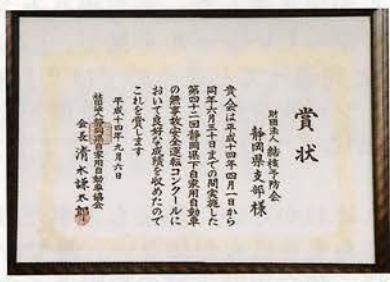 賞状
財団法人 結核予防会
静岡県支部様
貴会は平成十四年四月一日から
同年六月三十日までの間実施した
第四十二回静岡県下自家用自動車
の無事故安全運転コンクールに
おいて良好な成績を収めたので
これを賞します
平成十四年九月六日
社団法人静岡県自家用自動車協会
会長 清水謙太郎